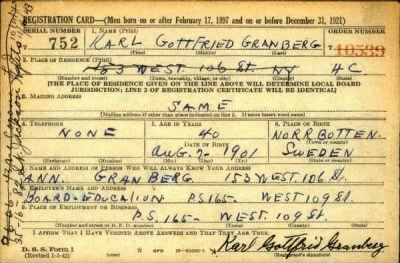 REGISTRATION CARD—(Men born on or after February 17, 1897 and on or before December 31, 1921)
SERIAL NUMBER 1. NAME (Print) ORDER NUMBER
752 KARL GOTTFRIED GRANBERG T 10539
(First) (Middle) (Last)
2. PLACE OF RESIDENCE (Print)
153 WEST 106 St. NY 4C
(Number and street) (Town, township, village, or city) (County) (State)
[THE PLACE OF RESIDENCE GIVEN ON THE LINE ABOVE WILL DETERMINE LOCAL BOARD
JURISDICTION; LINE 2 OF REGISTRATION CERTIFICATE WILL BE IDENTICAL]
3. MAILING ADDRESS
SAME
[Mailing address if other than place indicated on line 2. If same insert word same]
4. TELEPHONE 5. AGE IN YEARS 6. PLACE OF BIRTH
NONE 40 NORRBOTTEN.
DATE OF BIRTH (Town or county)
AUG. 7- 1901 SWEDEN
(Mo.) (Day) (Yr.) (State or country)
7. NAME AND ADDRESS OF PERSON WHO WILL ALWAYS KNOW YOUR ADDRESS
ANN GRANBERG 153 WEST 106 St.
8. EMPLOYER'S NAME AND ADDRESS
BOARD-EDUCATION PS 165- WEST 109 St.
9. PLACE OF EMPLOYMENT OR BUSINESS
P.S. 165- WEST. 109 St.
(Number and street or R. F. D. number) (Town) (County) (State)
I AFFIRM THAT I HAVE VERIFIED ABOVE ANSWERS AND THAT THEY ARE TRUE.
D. S. S. Form 1
(Revised 1-3-42) GPO Karl Gottfried Granberg